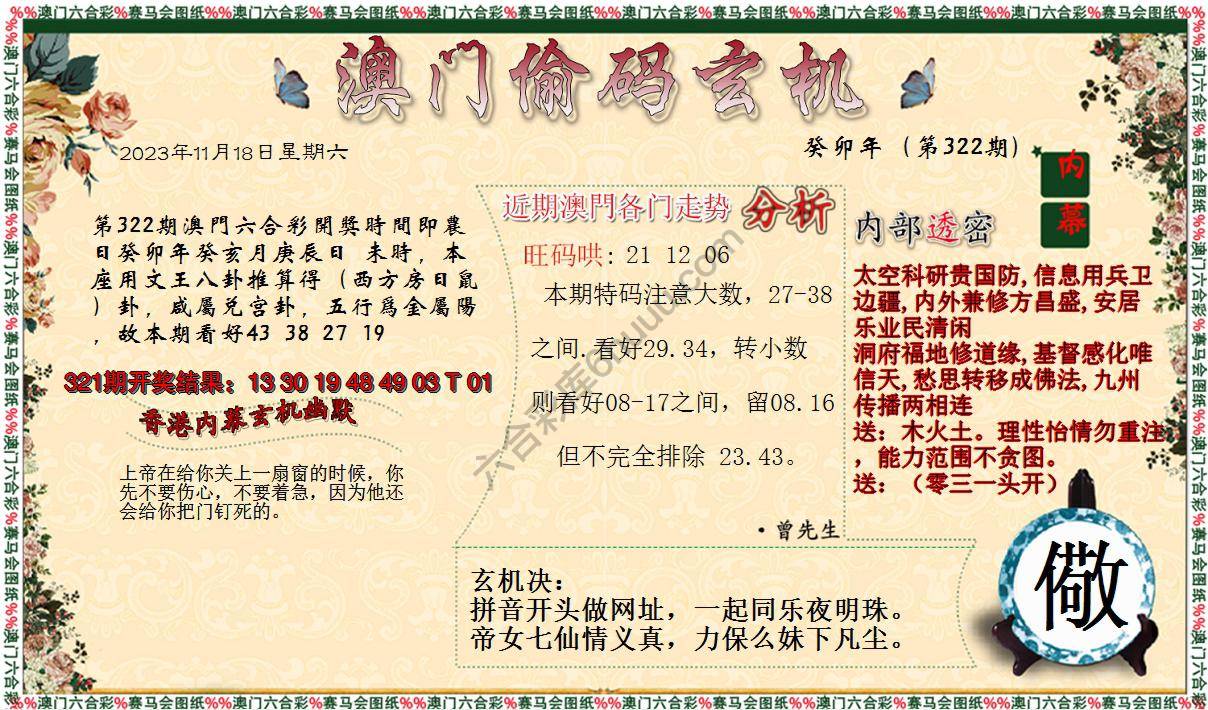 %%澳门六合彩%赛马会图纸%%澳门六合彩%赛马会图纸%%澳门六合彩%赛马会图纸%%澳门六合彩%赛马会图纸%%澳门六合彩%赛马会图纸%%澳门六合彩%赛马会图纸%%
澳门偷码玄机
2023年11月18日星期六
癸卯年（第322期）
内幕
第322期澳門六合彩開獎時間即農
日癸卯年癸亥月庚辰日 未時，本
座用文王八卦推算得（西方房日鼠
）卦，咸屬兑宫卦，五行爲金屬陽
，故本期看好43 38 27 19
321期开奖结果：13 30 19 48 49 03 T 01
香港内幕玄机幽默
上帝在给你关上一扇窗的时候，你
先不要伤心，不要着急，因为他还
会给你把门钉死的。
近期澳門各门走势 分析
旺码哄: 21 12 06
本期特码注意大数，27-38
之间.看好29.34，转小数
则看好08-17之间，留08.16
但不完全排除 23.43。
·曾先生
内部透密
太空科研贵国防,信息用兵卫
边疆,内外兼修方昌盛,安居
乐业民清闲
洞府福地修道缘,基督感化唯
信天,愁思转移成佛法,九州
传播两相连
送：木火土。理性怡情勿重注
，能力范围不贪图。
送：（零三一头开）
玄机决：
拼音开头做网址，一起同乐夜明珠。
帝女七仙情义真，力保么妹下凡尘。
儆